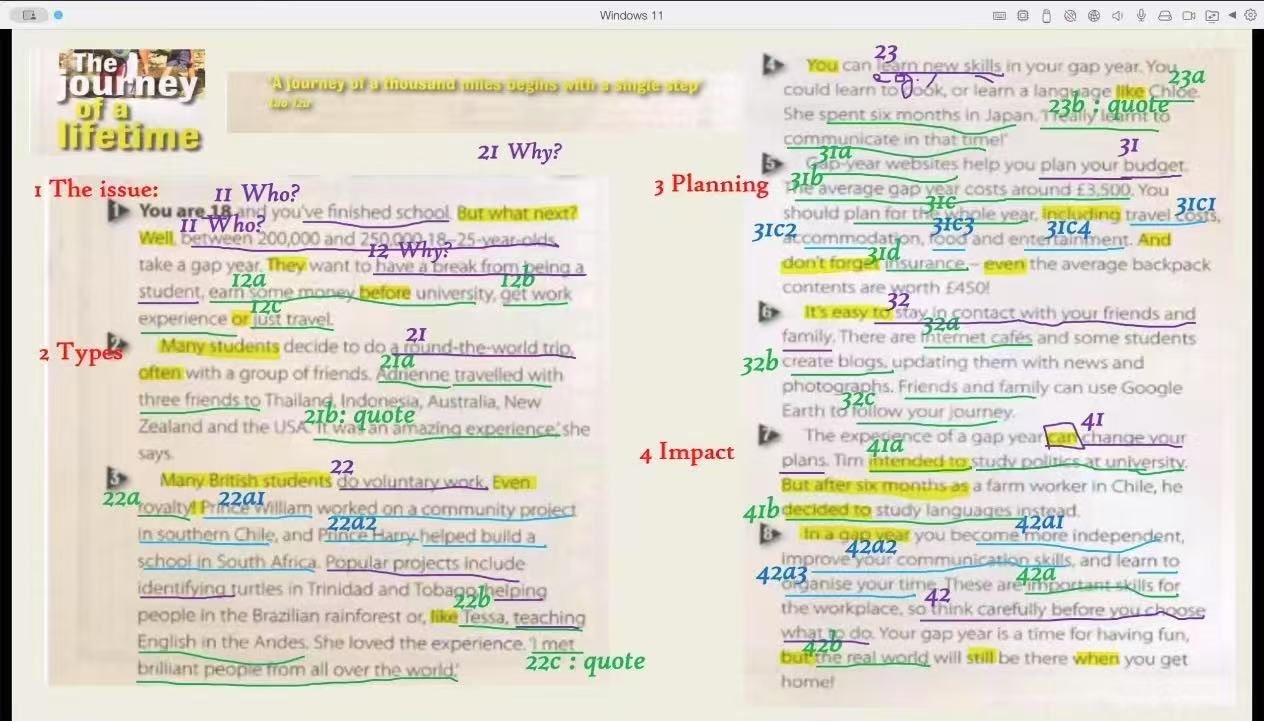 Windows 11
The
journey
of a
lifetime
'A journey of a thousand miles begins with a single step
Lao Tzu
21 Why?
1 The issue:
11 Who?
1 You are 18 and you've finished school. But what next?
11 Who?
Well, between 200,000 and 250,000 18–25-year-olds
12 Why?
take a gap year. They want to have a break from being a
12a
12b
student, earn some money before university, get work
12c
experience or just travel.
2 Types
21
2 Many students decide to do a round-the-world trip,
21a
often with a group of friends. Adrienne travelled with
three friends to Thailand, Indonesia, Australia, New
21b: quote
Zealand and the USA. 'It was an amazing experience,' she
says.
22
3 Many British students do voluntary work. Even
22a
22a1
royalty! Prince William worked on a community project
22a2
in southern Chile, and Prince Harry helped build a
school in South Africa. Popular projects include
identifying turtles in Trinidad and Tobago, helping
22b
people in the Brazilian rainforest or, like Tessa, teaching
English in the Andes. She loved the experience. 'I met
22c : quote
brilliant people from all over the world.'
23
4 You can learn new skills in your gap year. You
e.g.
23a
could learn to cook, or learn a language like Chloe.
23b : quote
She spent six months in Japan. 'I really learnt to
communicate in that time!'
31a
31
5 Gap-year websites help you plan your budget.
3 Planning
31b
The average gap year costs around £3,500. You
31c
31c1
should plan for the whole year, including travel costs,
31c2
31c3
31c4
accommodation, food and entertainment. And
31d
don't forget insurance – even the average backpack
contents are worth £450!
32
6 It's easy to stay in contact with your friends and
32a
family. There are internet cafés and some students
32b
create blogs, updating them with news and
photographs. Friends and family can use Google
32c
Earth to follow your journey.
41
7 The experience of a gap year can change your
4 Impact
41a
plans. Tim intended to study politics at university.
But after six months as a farm worker in Chile, he
41b
decided to study languages instead.
42a1
8 In a gap year you become more independent,
42a2
improve your communication skills, and learn to
42a3
42a
organise your time. These are important skills for
42
the workplace, so think carefully before you choose
what to do. Your gap year is a time for having fun,
42b
but the real world will still be there when you get
home!